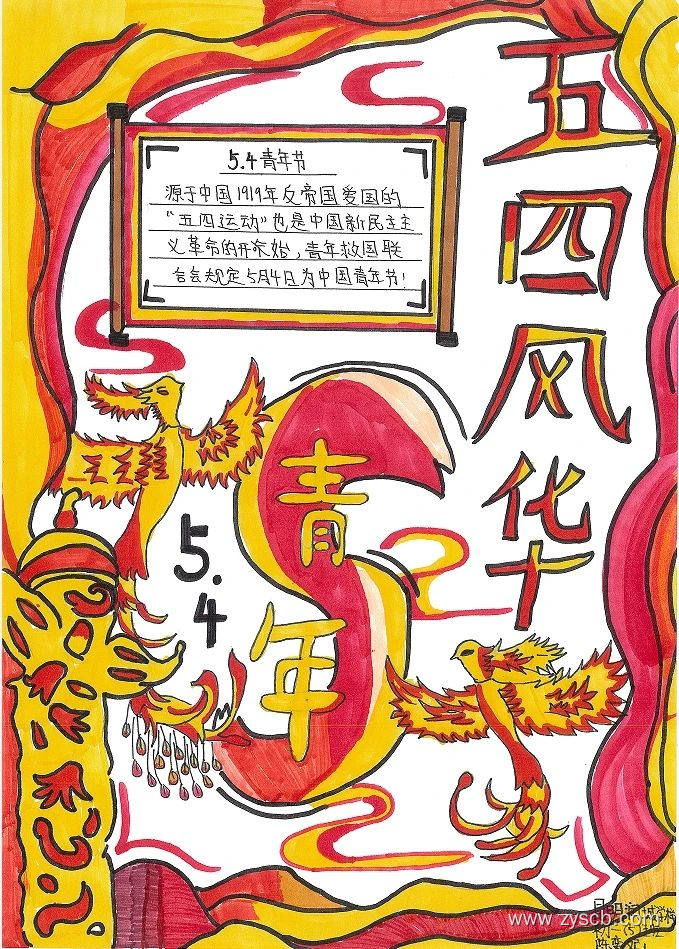 五四风华
5.4青年节
源于中国1919年反帝国爱国的
“五四运动”也是中国新民主主
义革命的开始，青年救国联
合会规定5月4日为中国青年节！
青年
5.4
www.zyscb.com